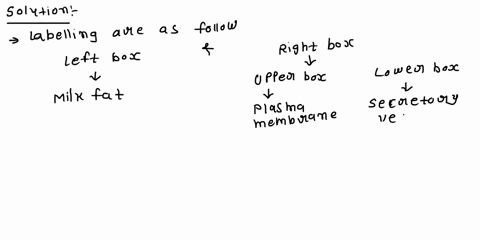 Solution:-
→ Labelling are as follow
Left box
↓
Milk fat
Right box
↓
Upper box
↓
Plasma
membrane
Lower box
↓
secretory
ve